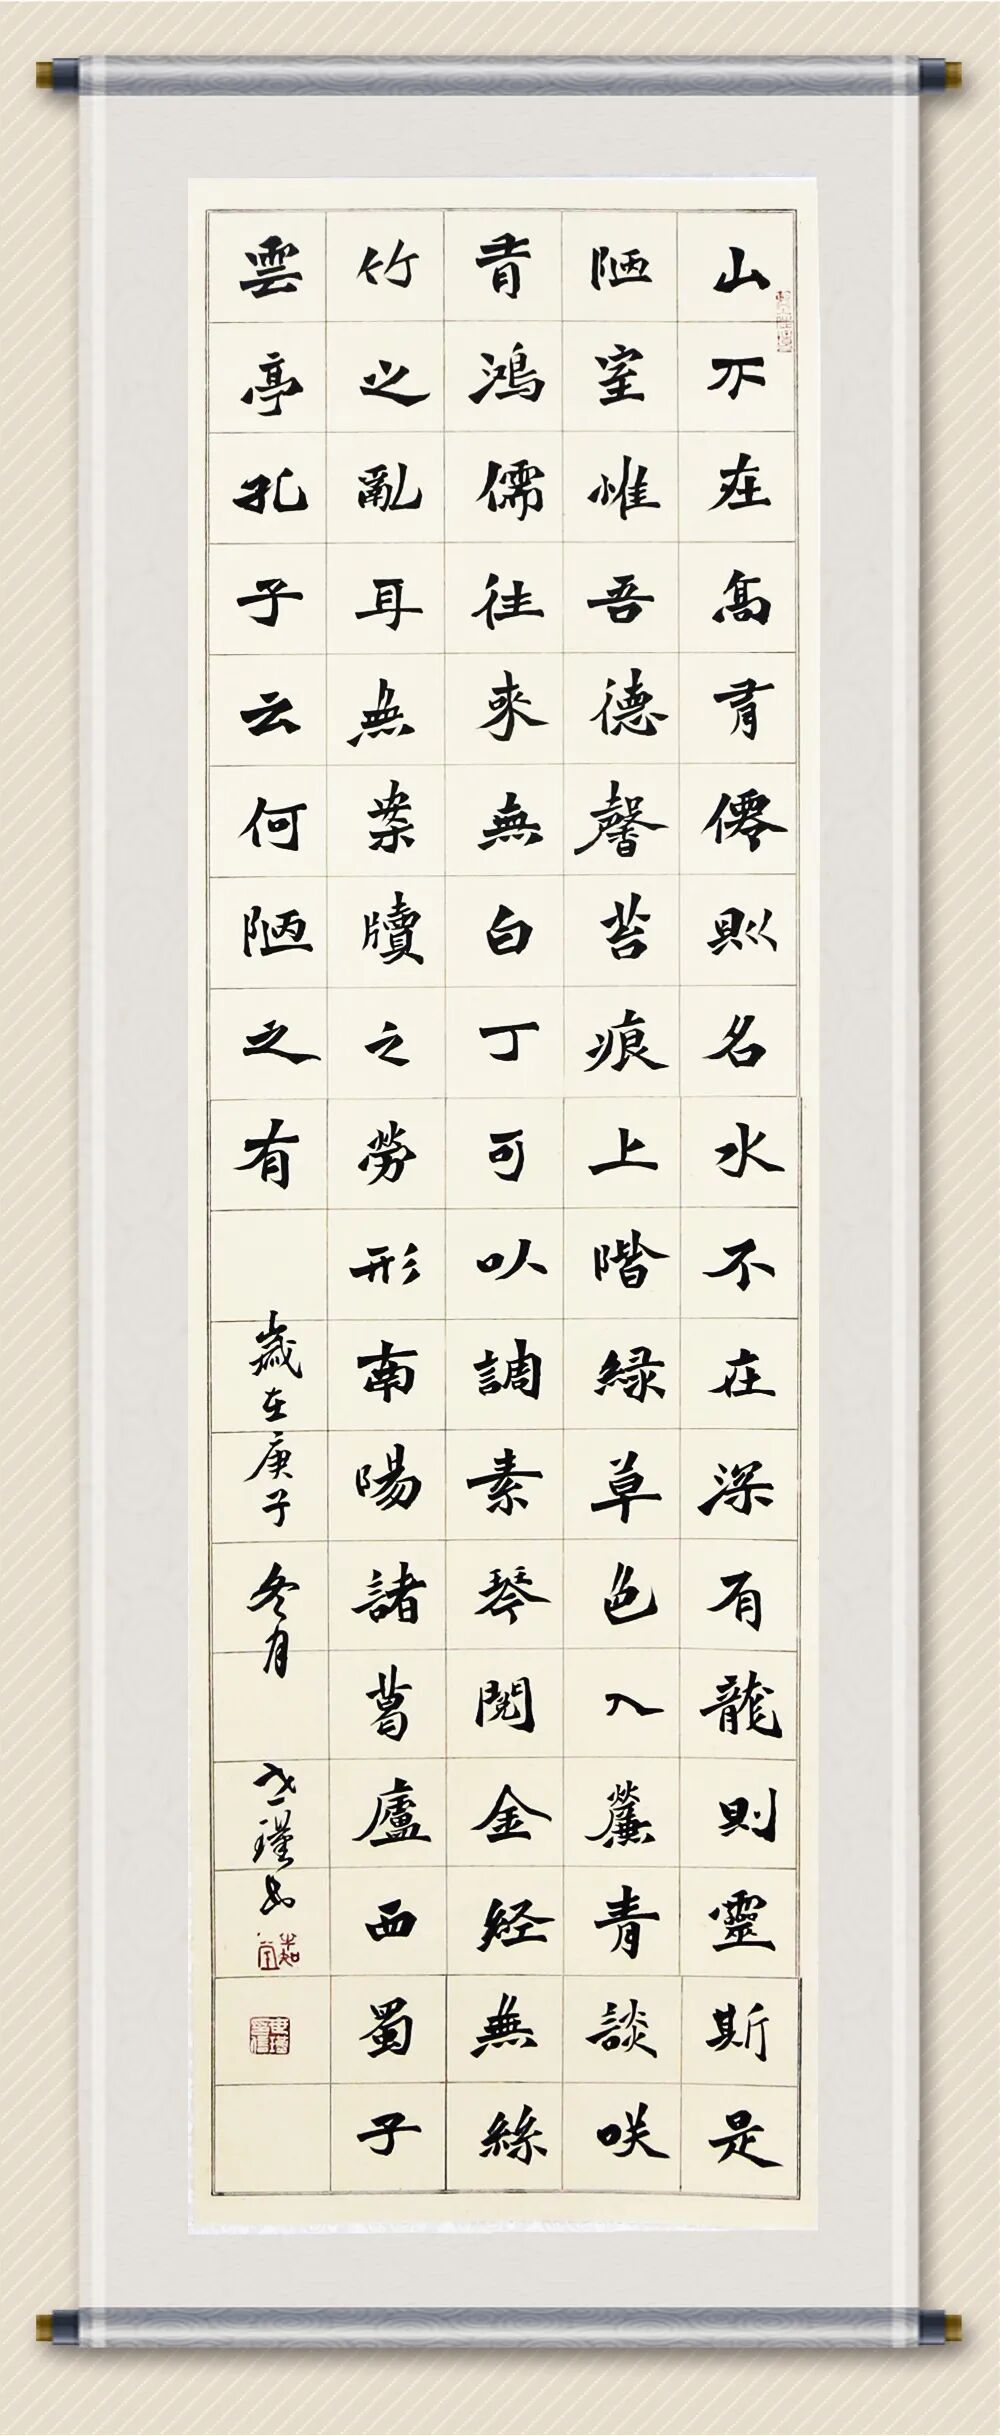 山不在高有僊則名水不在深有龍則靈斯是
陋室惟吾德馨苔痕上階緑草色入簾青談咲
有鴻儒往來無白丁可以調素琴閲金経無絲
竹之亂耳無案牘之勞形南陽諸葛廬西蜀子
雲亭孔子云何陋之有
歲在庚子冬月